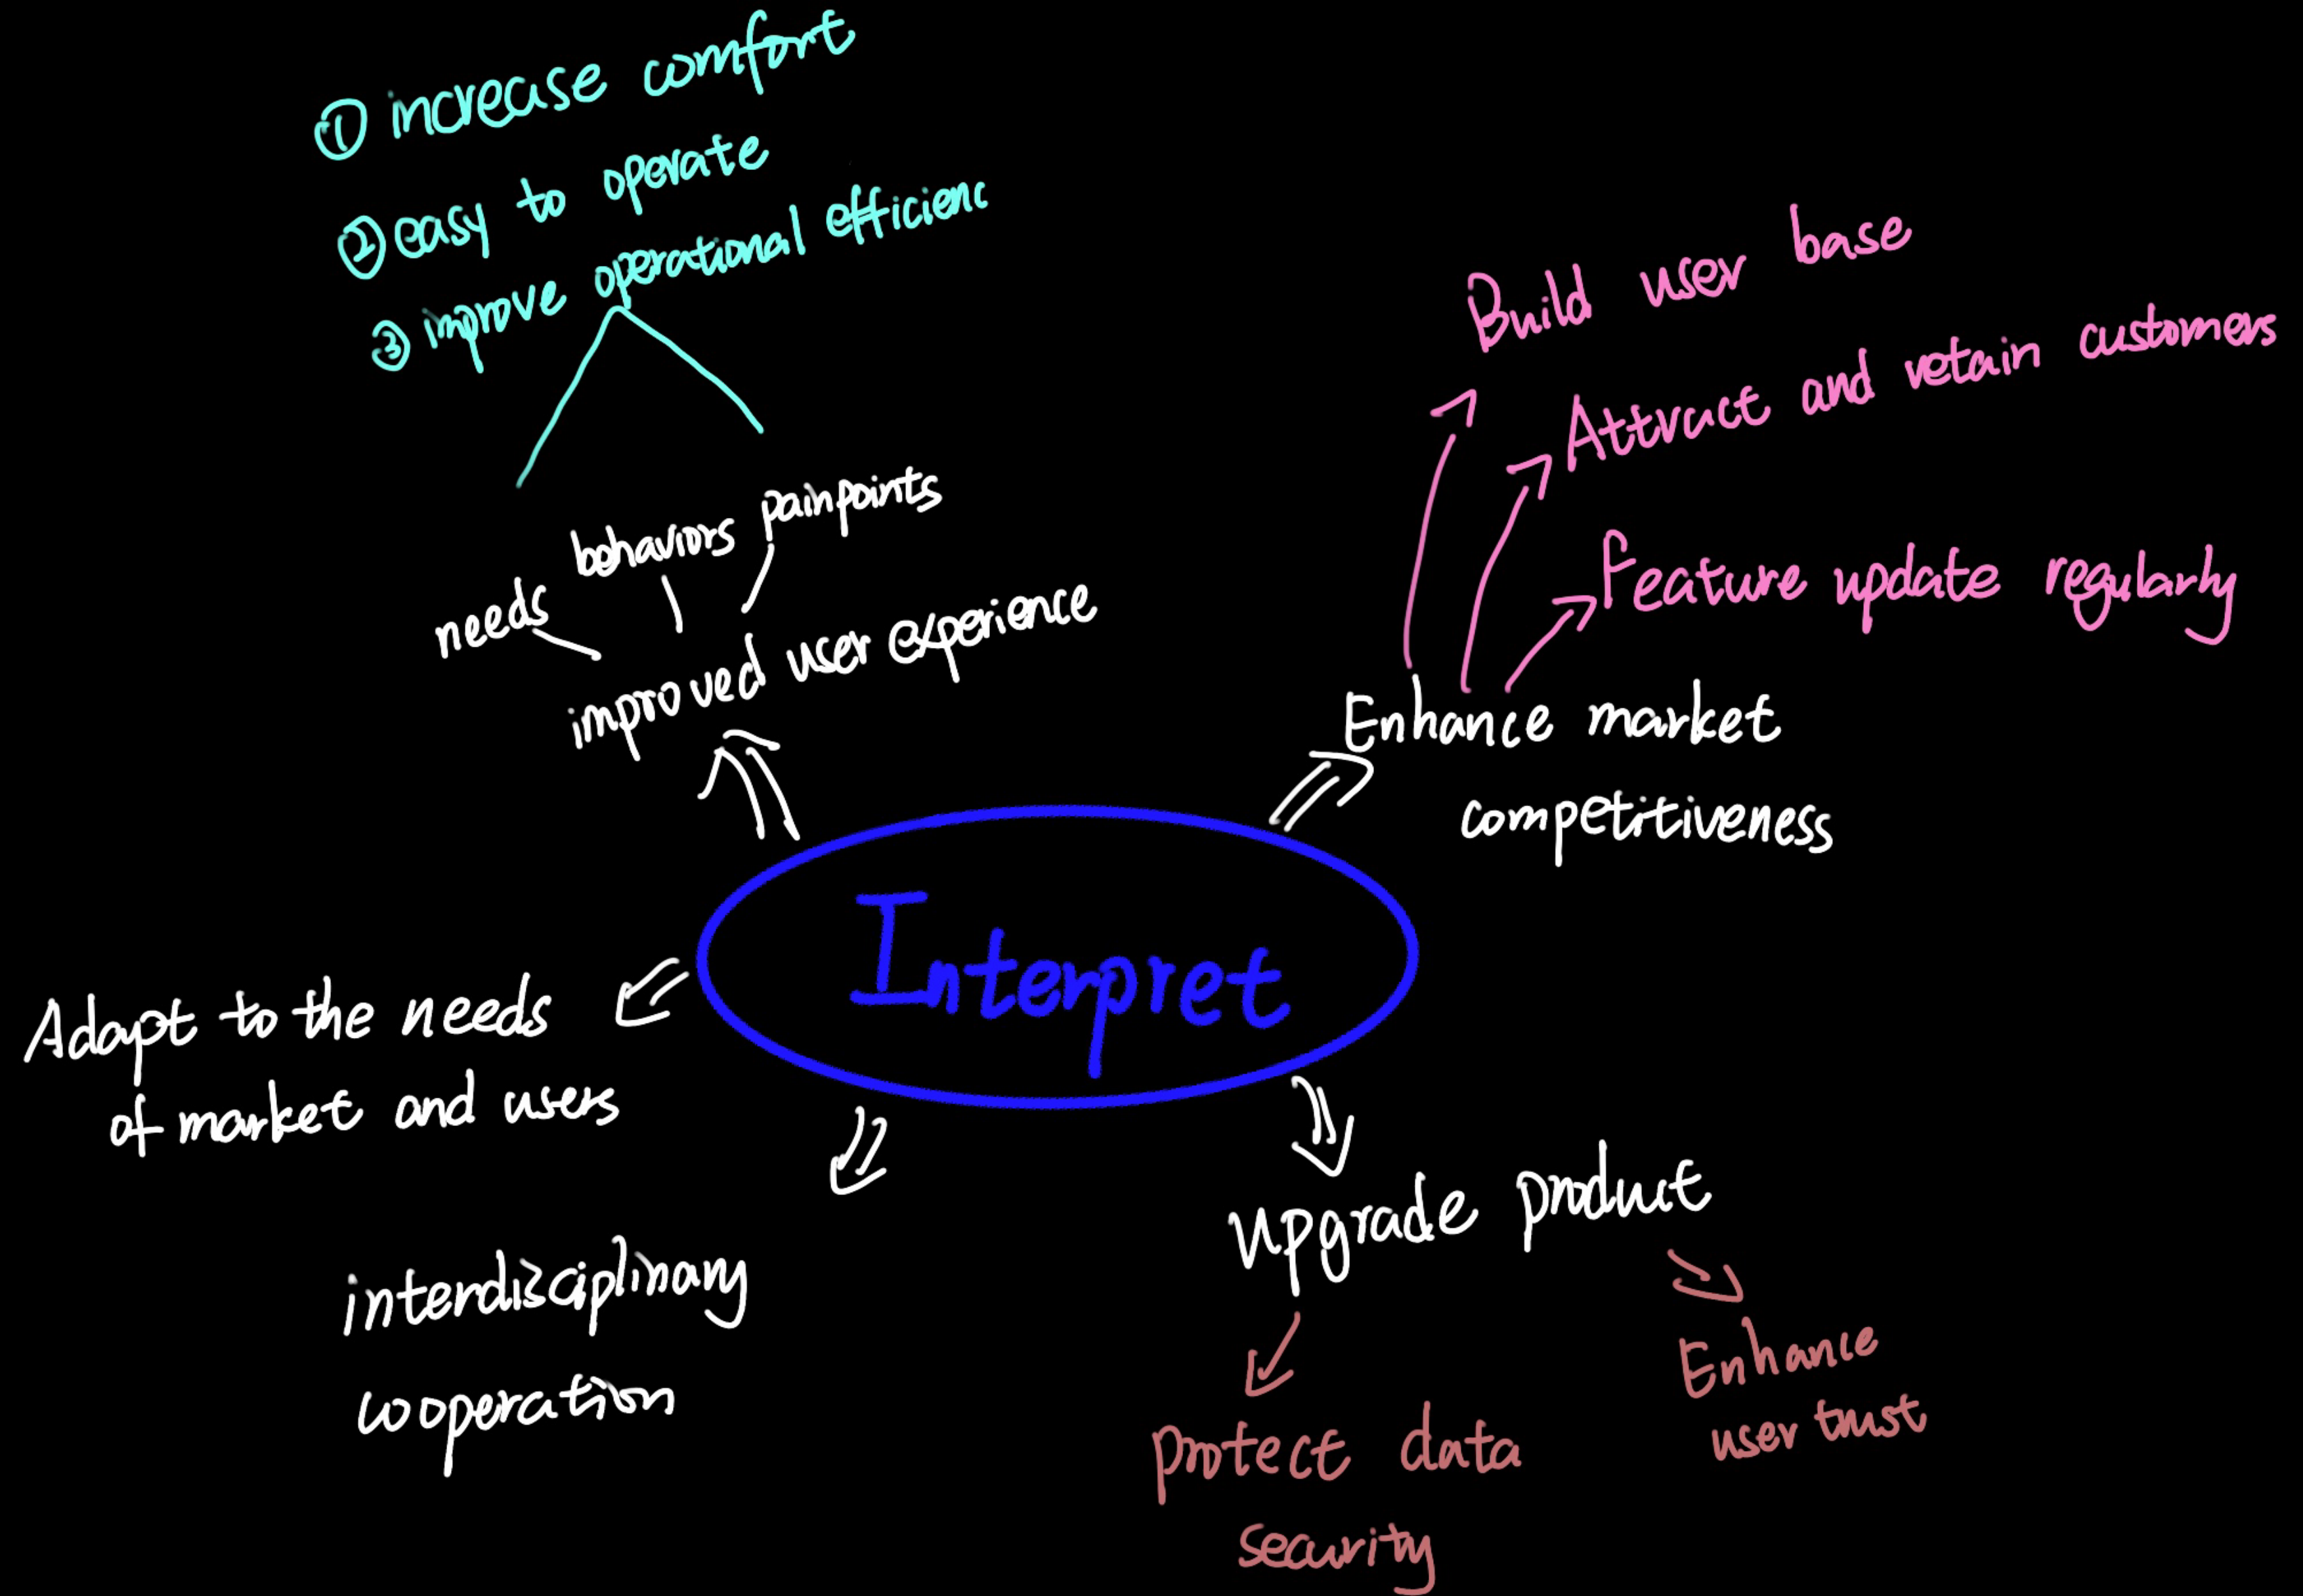 ① increase comfort
② easy to operate
③ improve operational efficienc
needs
behaviors
painpoints
improved user experience
Build user base
Attract and retain customers
Feature update regularly
Enhance market
competitiveness
Interpret
Adapt to the needs
of market and users
interdisciplinary
cooperation
upgrade product
protect data
security
Enhance
user trust